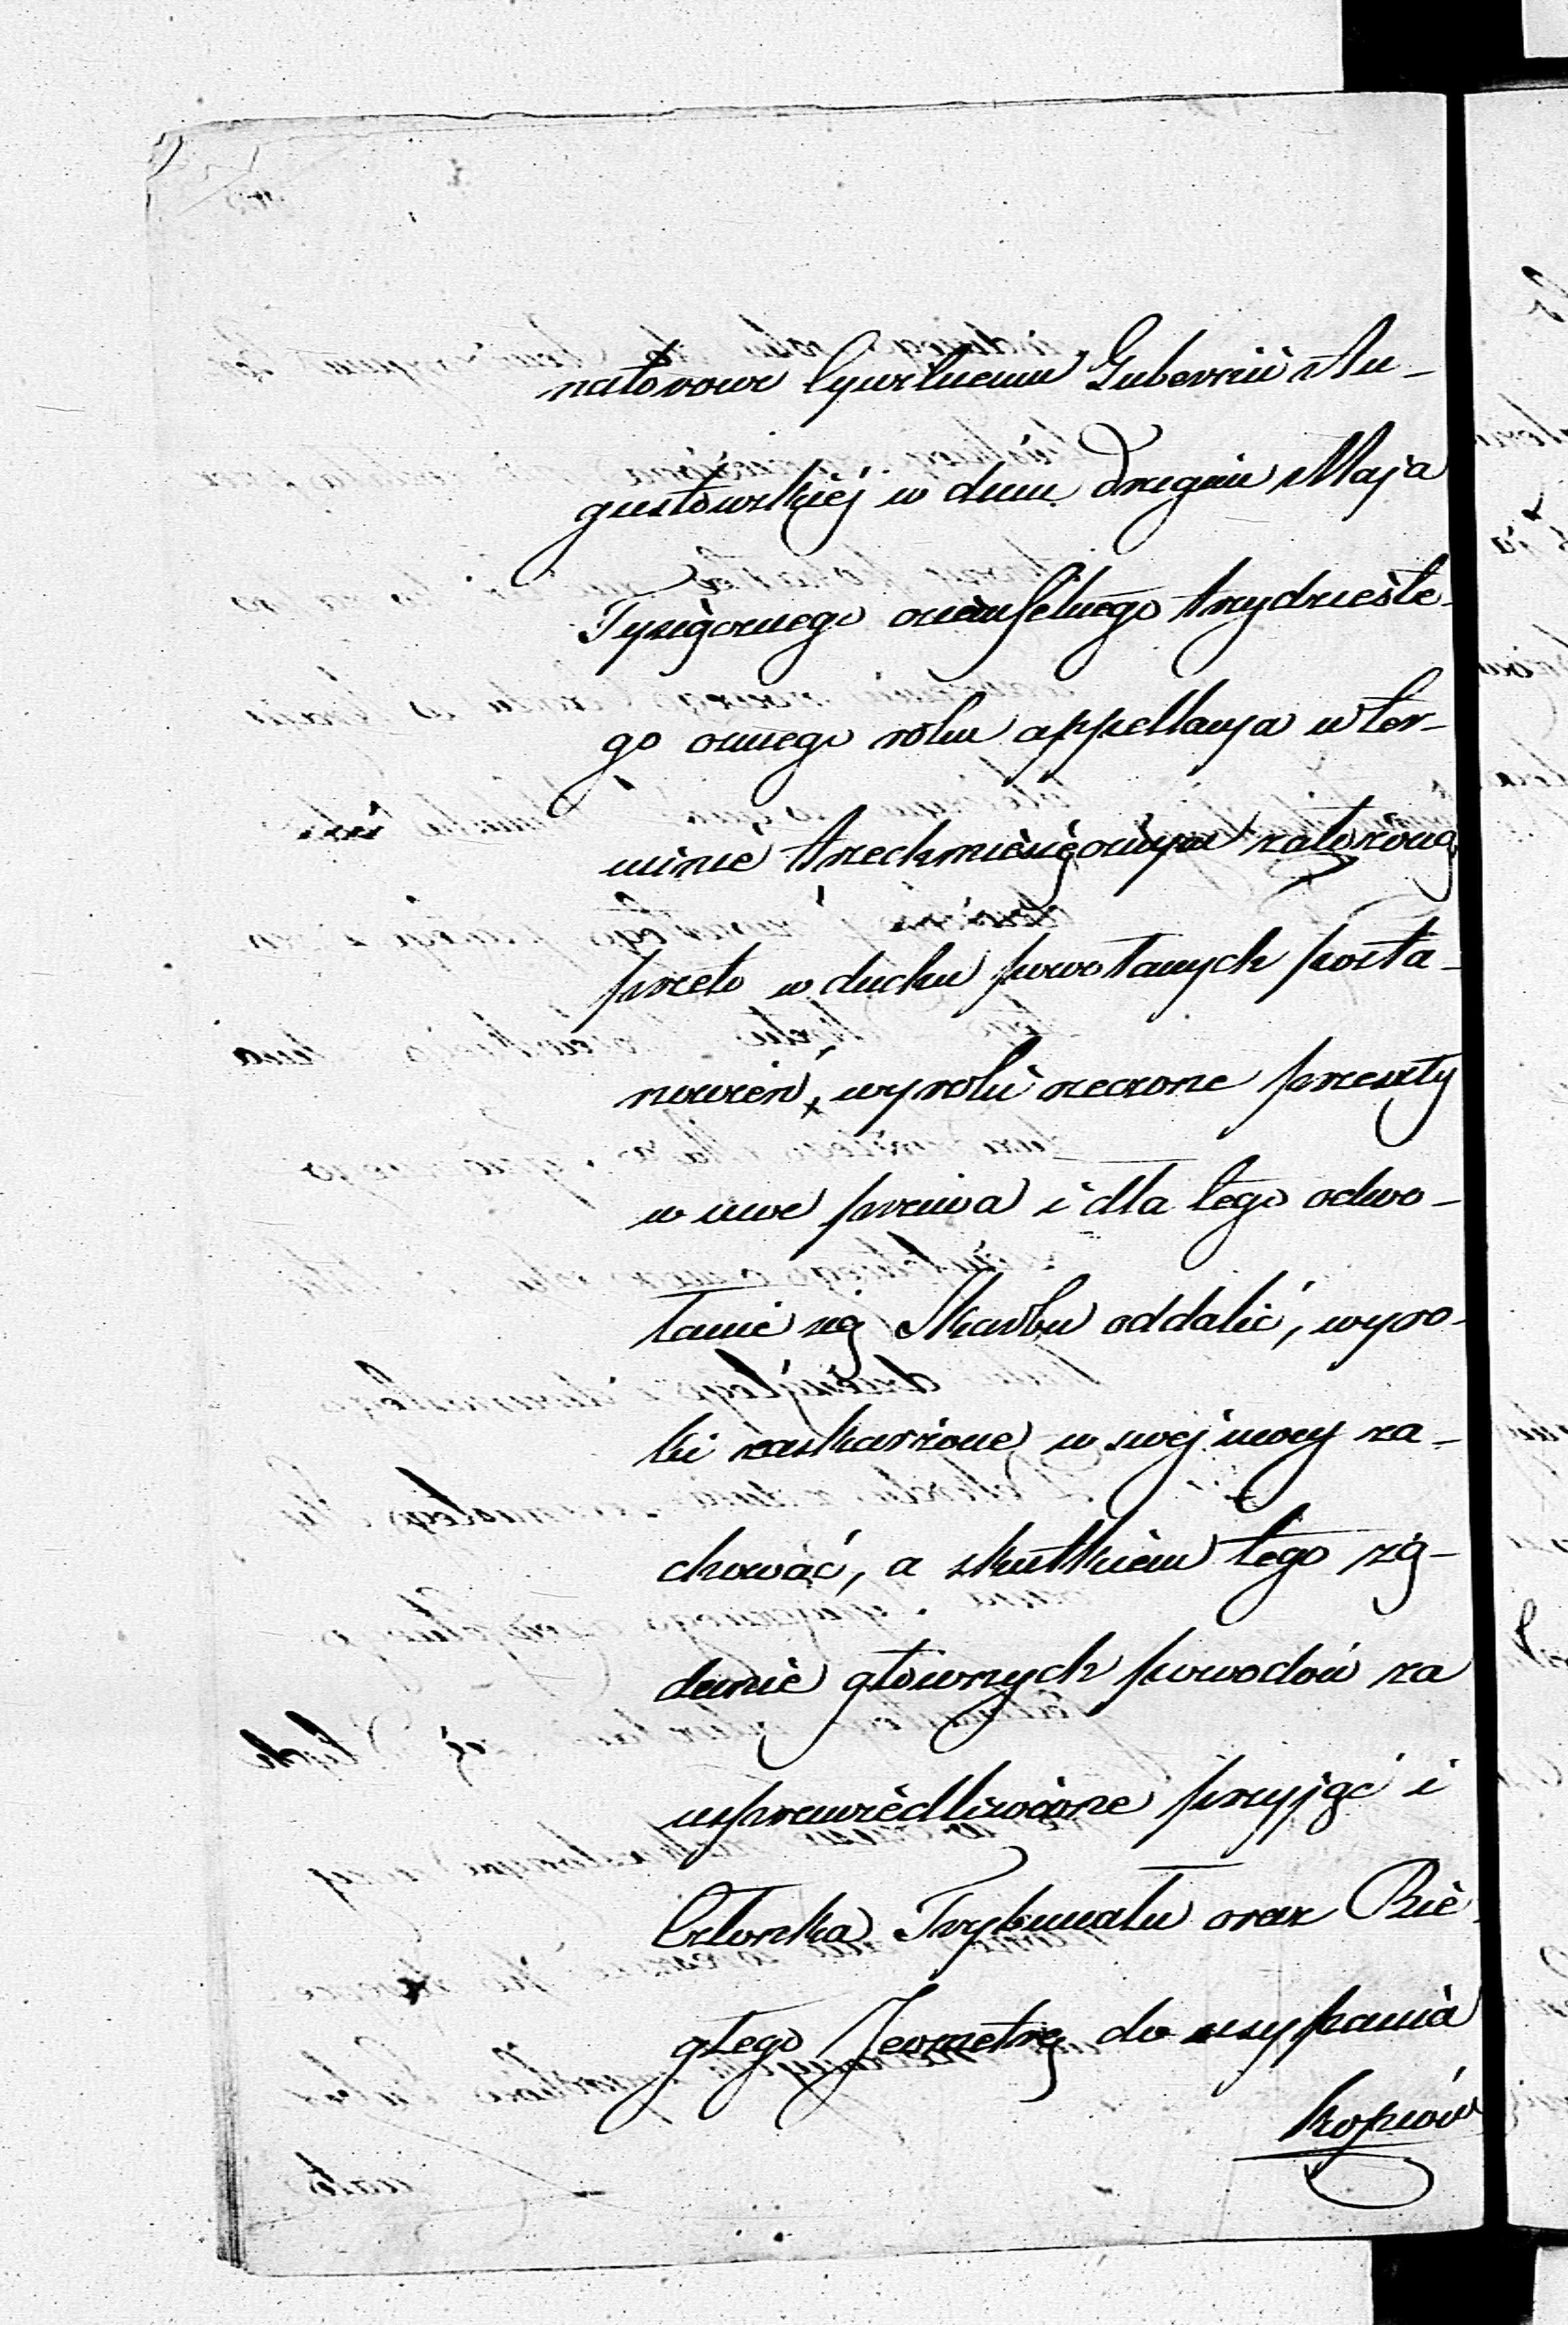 natorowi Cywilnemu Gubernii Au-
gustowskiéj w dniu Drugim Maja
Tysiącznego ośmsetnego trzydzieste-
go ósmego roku appellacya w ter-
minie trzechmiesięcznym założoną
przeto w duchu powołanych posta-
nowień, wyroki rzeczone przeszły
w moc prawa i dla tego odwo-
łanie się Skarbu oddalić, wyro-
ki zaskarżone w swéj mocy za-
chować, a skutkiem tego żą-
danie głównych powodów za
usprawiedliwione przyjąć i
Członka Trybunału oraz Bie-
głego Jeometrę do usypania
kopców